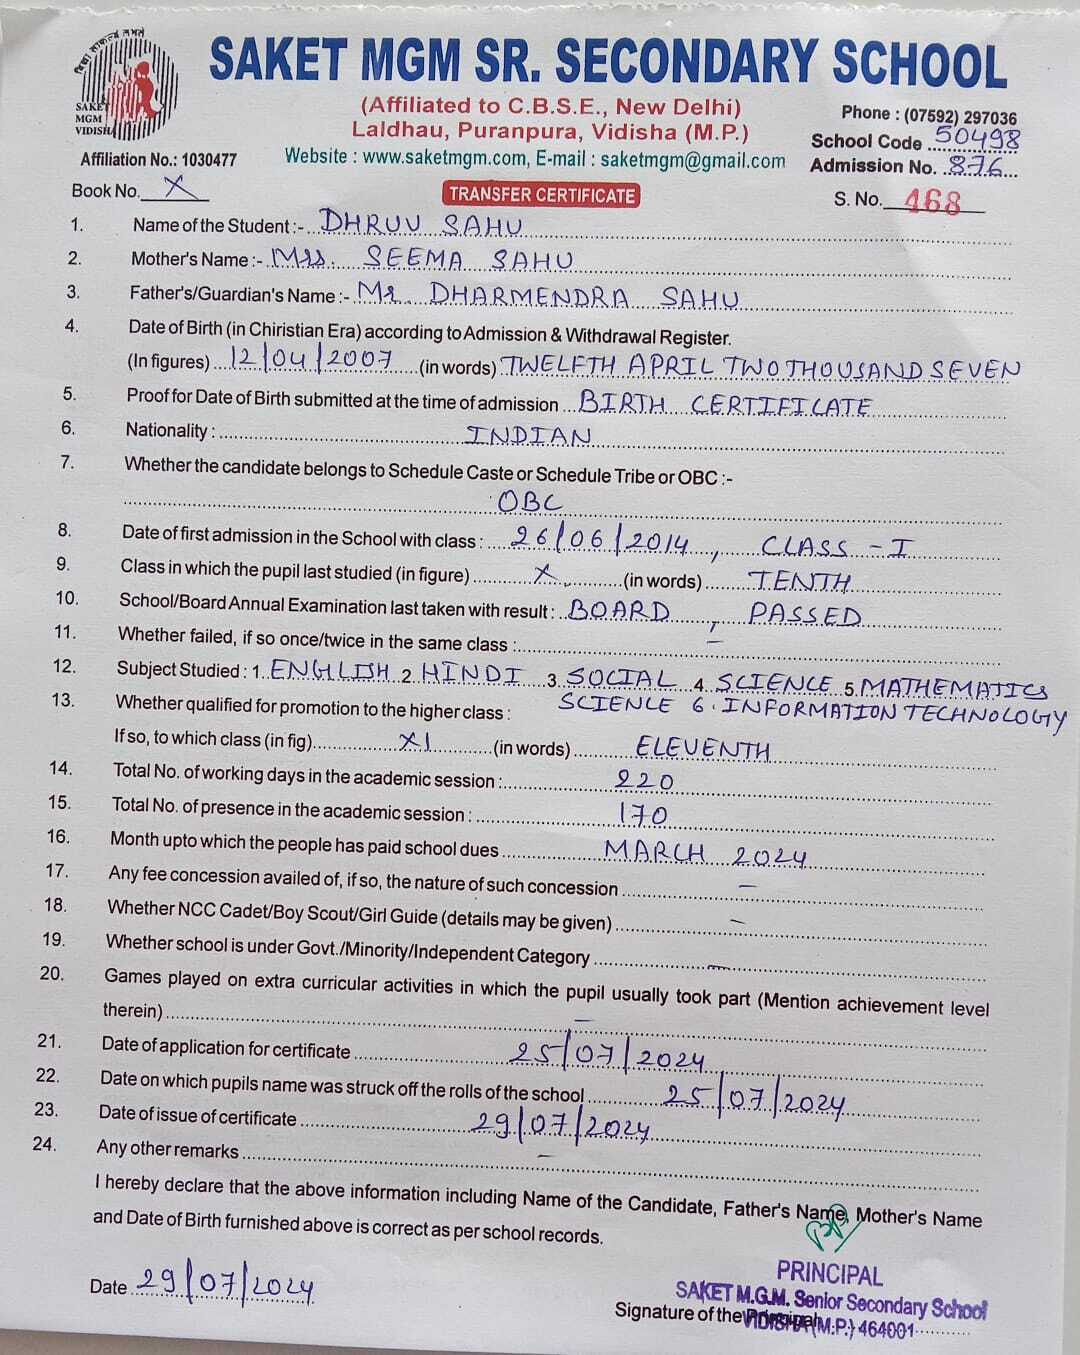 विद्या साकल्य लभते
SAKET
MGM
VIDISHA
SAKET MGM SR. SECONDARY SCHOOL
(Affiliated to C.B.S.E., New Delhi)
Laldhau, Puranpura, Vidisha (M.P.)
Phone : (07592) 297036
School Code 50498
Affiliation No.: 1030477
Website : www.saketmgm.com, E-mail : saketmgm@gmail.com
Admission No. 876
Book No. X
TRANSFER CERTIFICATE
S. No. 468
1. Name of the Student :- DHRUV SAHU
2. Mother's Name :- Mrs. SEEMA SAHU
3. Father's/Guardian's Name :- Mr DHARMENDRA SAHU
4. Date of Birth (in Chiristian Era) according to Admission & Withdrawal Register.
(In figures) 12/04/2007 (in words) TWELFTH APRIL TWO THOUSAND SEVEN
5. Proof for Date of Birth submitted at the time of admission BIRTH CERTIFICATE
6. Nationality : INDIAN
7. Whether the candidate belongs to Schedule Caste or Schedule Tribe or OBC :-
OBC
8. Date of first admission in the School with class : 26/06/2014, CLASS - I
9. Class in which the pupil last studied (in figure) X (in words) TENTH
10. School/Board Annual Examination last taken with result : BOARD, PASSED
11. Whether failed, if so once/twice in the same class : –
12. Subject Studied : 1. ENGLISH 2. HINDI 3. SOCIAL 4. SCIENCE 5. MATHEMATICS
13. Whether qualified for promotion to the higher class : SCIENCE 6. INFORMATION TECHNOLOGY
If so, to which class (in fig) XI (in words) ELEVENTH
14. Total No. of working days in the academic session : 220
15. Total No. of presence in the academic session : 170
16. Month upto which the people has paid school dues MARCH 2024
17. Any fee concession availed of, if so, the nature of such concession –
18. Whether NCC Cadet/Boy Scout/Girl Guide (details may be given) –
19. Whether school is under Govt./Minority/Independent Category –
20. Games played on extra curricular activities in which the pupil usually took part (Mention achievement level
therein) –
21. Date of application for certificate 25/07/2024
22. Date on which pupils name was struck off the rolls of the school 25/07/2024
23. Date of issue of certificate 29/07/2024
24. Any other remarks –
I hereby declare that the above information including Name of the Candidate, Father's Name, Mother's Name
and Date of Birth furnished above is correct as per school records.
Date 29/07/2024
PRINCIPAL
SAKET M.G.M. Senior Secondary School
Signature of the Principal
VIDISHA (M.P.) 464001